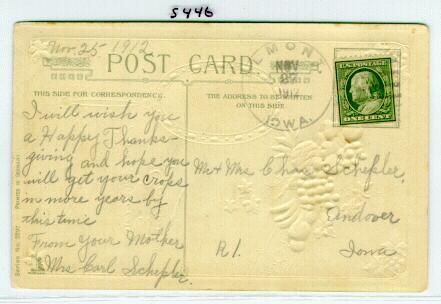 5446
Nov. 25 1912
POST CARD
THIS SIDE FOR CORRESPONDENCE.
THE ADDRESS TO BE WRITTEN
ON THIS SIDE.
LMONT
NOV
1912
IOWA.
U.S. POSTAGE
ONE CENT
I will wish you
a Happy Thanks-
giving and hope you
will get your crops
in more years by
this time
From Your Mother
Mrs Carl Schipler.
Mr & Mrs Chas Schipler.
Eindover
R1.
Iowa
PRINTED IN GERMANY
Series No.